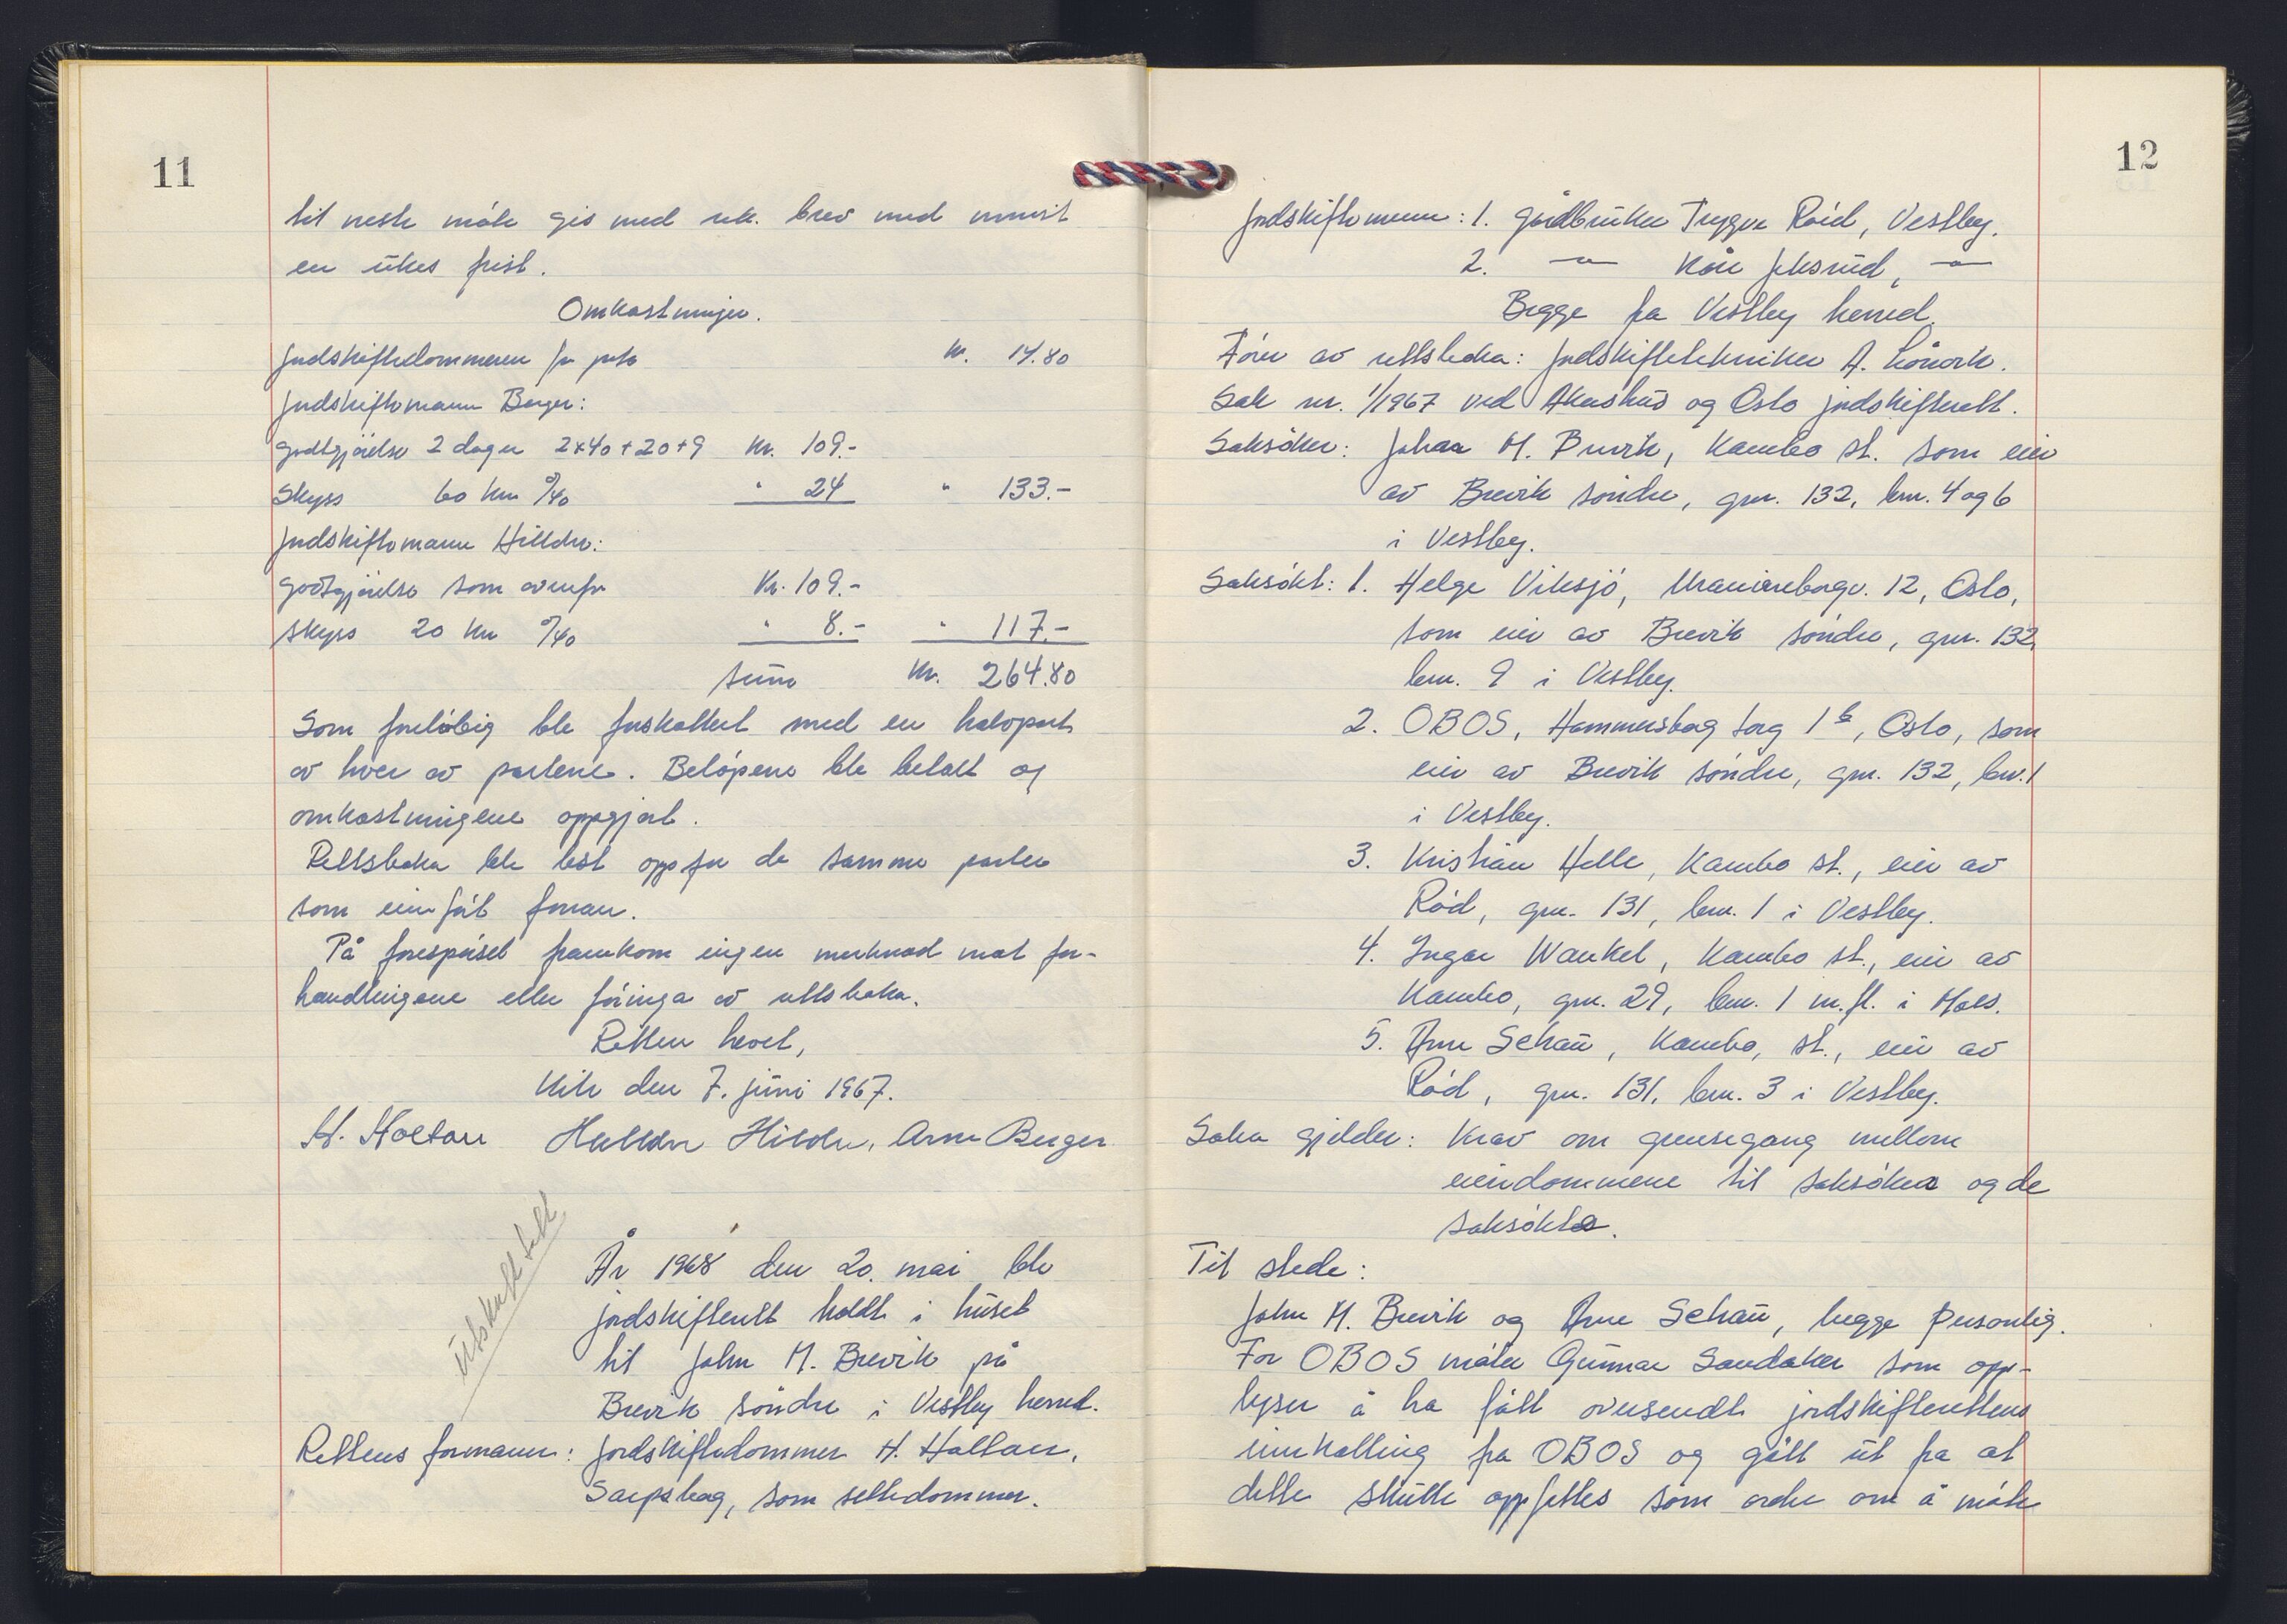 11
til neste møte gis med rek. brev med minst
en ukes frist.
Omkostninger.
Jordskiftedommeren for porto kr. 14.80
Jordskiftemann Berger:
Godtgjørelse 2 dager 2x40+20+9 kr. 109.-
Skyss 60 km %40 " 24 " 133.-
Jordskiftemann Hilldre:
Godtgjørelse som ovenfor kr. 109.-
Skyss 20 km %40 " 8.- " 117.-
Sum kr. 264.80
Som foreløbig ble forskottert med en halvpart
av hver av partene. Beløpene ble betalt og
omkostningene oppgjort.
Rettsboka ble lest opp for de samme parter
som innført foran.
På forespørsel framkom ingen merknad mot for-
handlingene eller føringa av rettsboka.
Retten hevet,
den 7. juni 1967.
H. Holtan Halldor Hildre, Arne Berger
Utskrift tatt
År 1968 den 20. mai ble
jordskifterett holdt i huset
til John M. Brevik på
Brevik søndre i Vestby herred.
Rettens formann: Jordskiftedommer H. Holtan,
Sarpsborg, som settedommer.
12
Jordskiftemenn: 1. Gårdbruker Trygve Rød, Vestby.
2. —"— Kåre Jeksrud, —"—
Begge fra Vestby herred.
Fører av rettsboka: Jordskiftetekniker A. Lønvik.
Sak nr. 1/1967 ved Akershus og Oslo jordskifterett.
Saksøker: Johan M. Brevik, Kambo st. som eier
av Brevik søndre, gnr. 132, bnr. 4 og 6
i Vestby.
Saksøkt: 1. Helge Viksjø, Uranienborgv. 12, Oslo,
som eier av Brevik søndre, gnr. 132,
bnr. 9 i Vestby.
2. OBOS, Hammersborg torg 1b, Oslo, som
eier av Brevik søndre, gnr. 132, bnr. 1
i Vestby.
3. Kristian Helle, Kambo st., eier av
Rød, gnr. 131, bnr. 1 i Vestby.
4. Ingar Wankel, Kambo st., eier av
Kambo, gnr. 29, bnr. 1 m.fl. i Moss.
5. Arne Schau, Kambo, st., eier av
Rød, gnr. 131, bnr. 3 i Vestby.
Saka gjelder: Krav om grensegang mellom
eiendommene til saksøker og de
saksøkte.
Til stede:
John M. Brevik og Arne Schau, begge personlig.
For OBOS møter Gunnar Sandaker som opp-
lyser å ha fått oversendt jordskifterettens
innkalling fra OBOS og gått ut fra at
dette skulle oppfattes som ordre om å møte